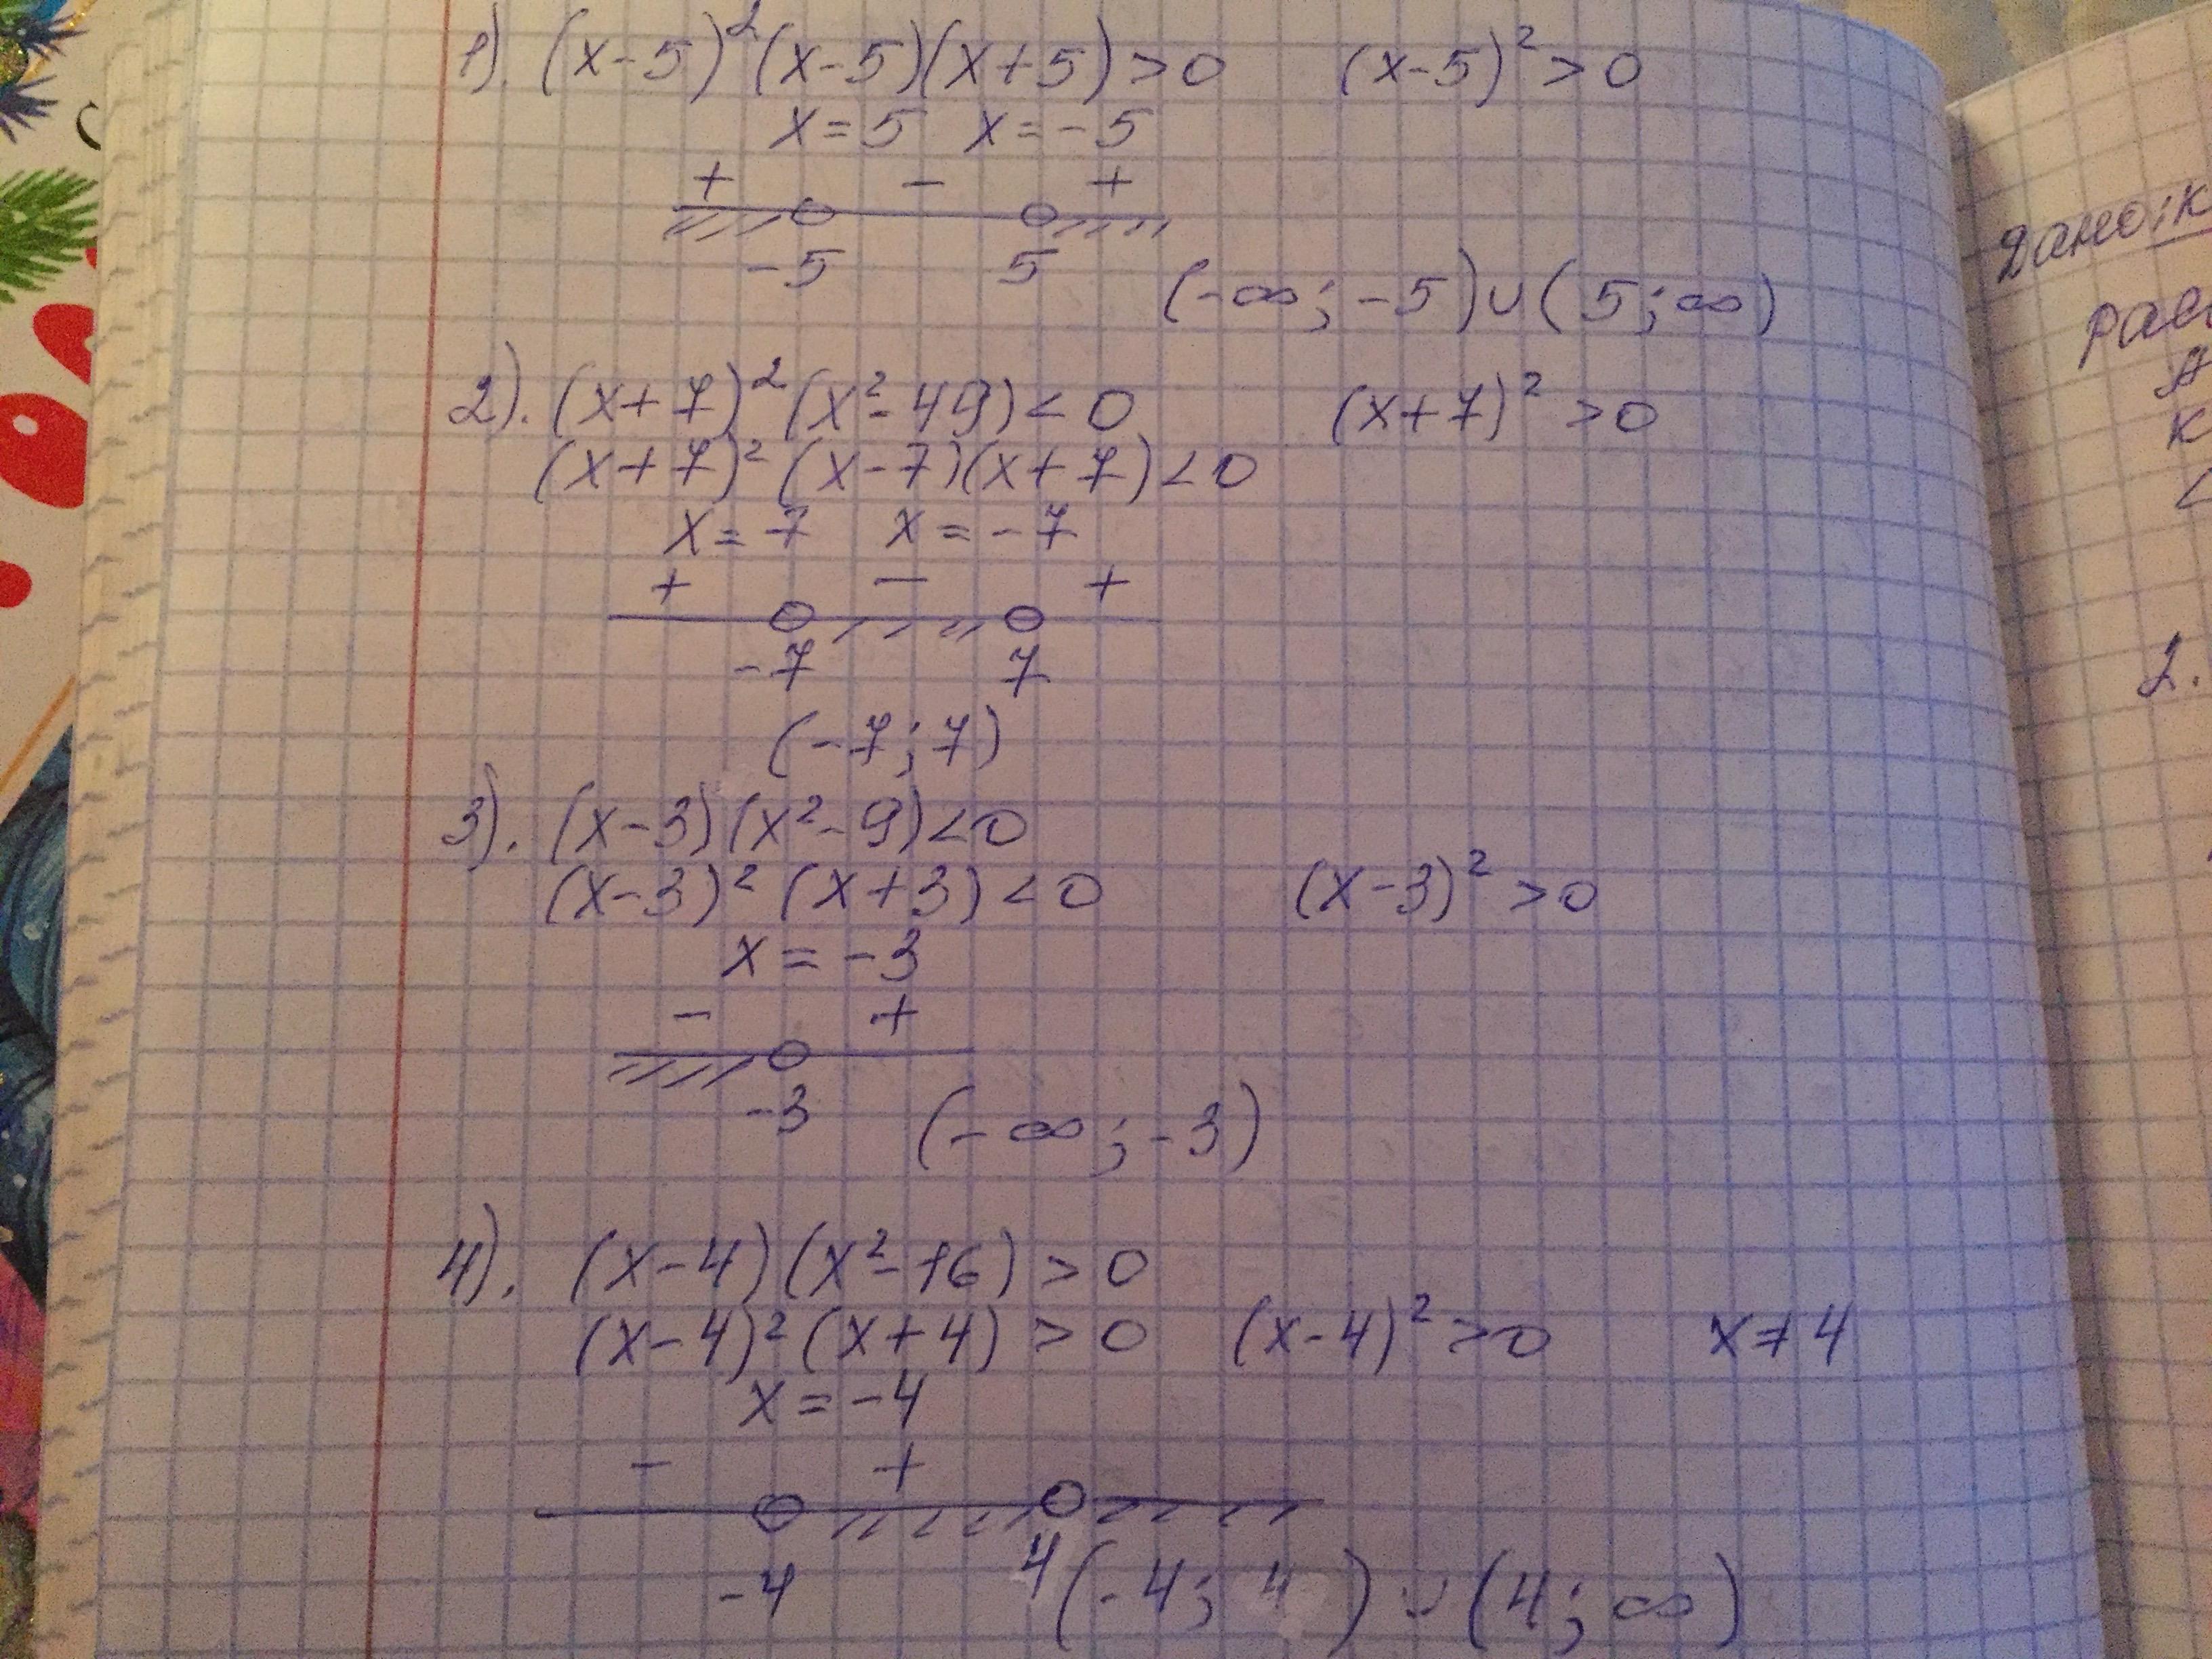 1). (x-5)²(x-5)(x+5)>0 (x-5)²>0
x=5 x=-5
+ - +
-5 5
(-∞;-5)∪(5;∞)
2). (x+7)²(x²-49)<0 (x+7)²>0
(x+7)²(x-7)(x+7)<0
x=7 x=-7
+ - +
-7 7
(-7;7)
3). (x-3)(x²-9)<0
(x-3)²(x+3)<0 (x-3)²>0
x=-3
- +
-3
(-∞;-3)
4). (x-4)(x²-16)>0
(x-4)²(x+4)>0 (x-4)²>0 x≠4
x=-4
- +
-4 4
(-4;4)∪(4;∞)
Дано:к
2.